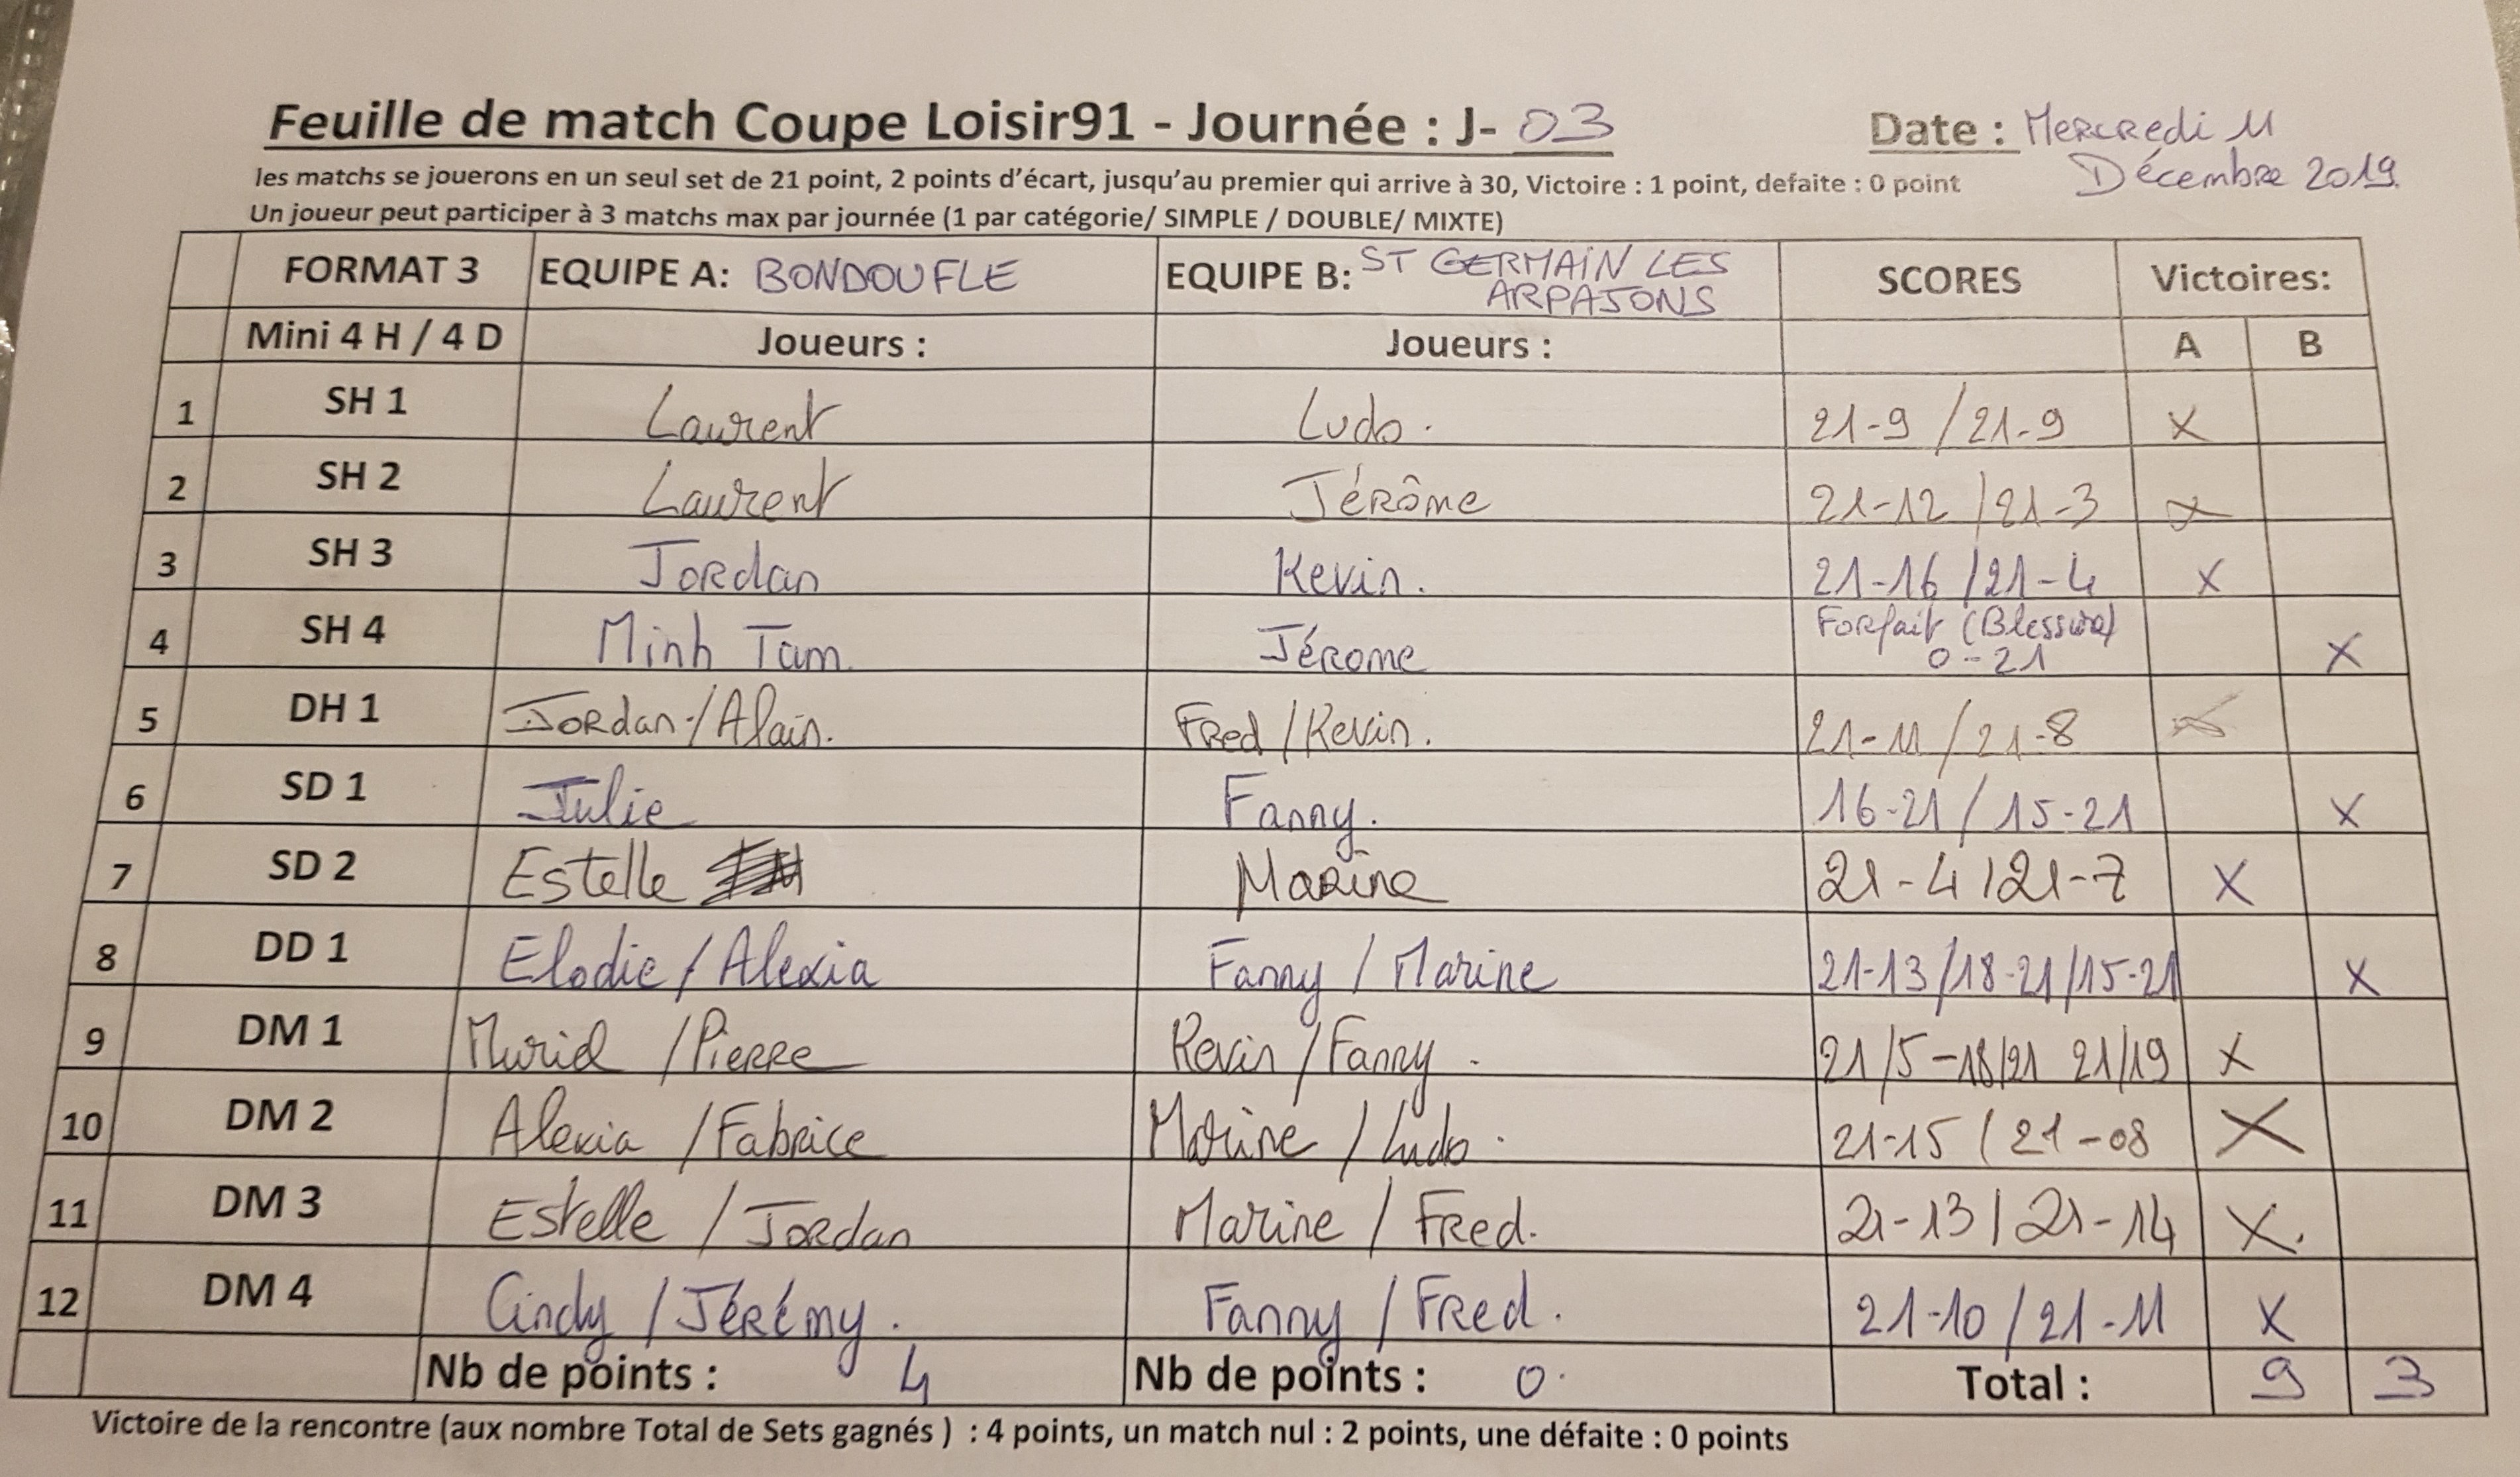 Feuille de match Coupe Loisir91 - Journée : J- 03
Date : Mercredi 11
Décembre 2019.
les matchs se jouerons en un seul set de 21 point, 2 points d'écart, jusqu'au premier qui arrive à 30, Victoire : 1 point, defaite : 0 point
Un joueur peut participer à 3 matchs max par journée (1 par catégorie/ SIMPLE / DOUBLE/ MIXTE)
FORMAT 3 EQUIPE A: BONDOUFLE EQUIPE B: ST GERMAIN LES ARPAJONS SCORES Victoires:
Mini 4 H / 4 D Joueurs : Joueurs : A B
1 SH 1 Laurent Ludo. 21-9 / 21-9 X
2 SH 2 Laurent Jérôme 21-12 / 21-3 X
3 SH 3 Jordan Kevin. 21-16 / 21-4 X
4 SH 4 Minh Tam. Jérome Forfait (Blessure) 0-21 X
5 DH 1 Jordan / Alain. Fred / Kevin. 21-11 / 21-8 X
6 SD 1 Julie Fanny. 16-21 / 15-21 X
7 SD 2 Estelle Marine 21-4 / 21-7 X
8 DD 1 Elodie / Alexia Fanny / Marine 21-13 / 18-21 / 15-21 X
9 DM 1 Muriel / Pierre Kevin / Fanny. 21/5 - 18/21 21/19 X
10 DM 2 Alexia / Fabrice Marine / Ludo. 21-15 / 21-08 X
11 DM 3 Estelle / Jordan Marine / Fred. 21-13 / 21-14 X.
12 DM 4 Cindy / Jérémy. Fanny / Fred. 21-10 / 21-11 X
Nb de points : 4 Nb de points : 0. Total : 9 3
Victoire de la rencontre (aux nombre Total de Sets gagnés ) : 4 points, un match nul : 2 points, une défaite : 0 points